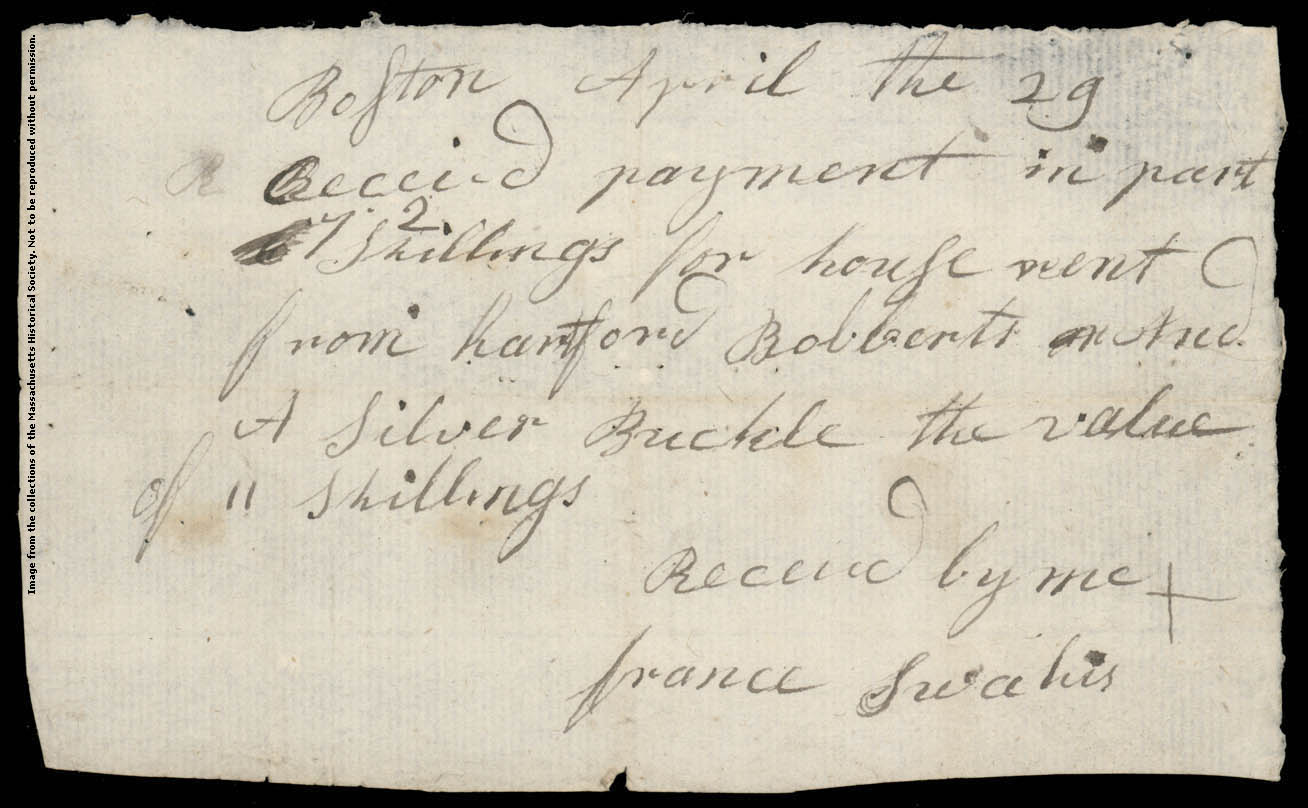 Image from the collections of the Massachusetts Historical Society. Not to be reproduced without permission.
Boston April the 29
R Receivd payment in part
7 2 Shillings for house rent
from hartford Bobberts And
A Silver Buckle the value
of 11 Shillings
Receivd by me +
france